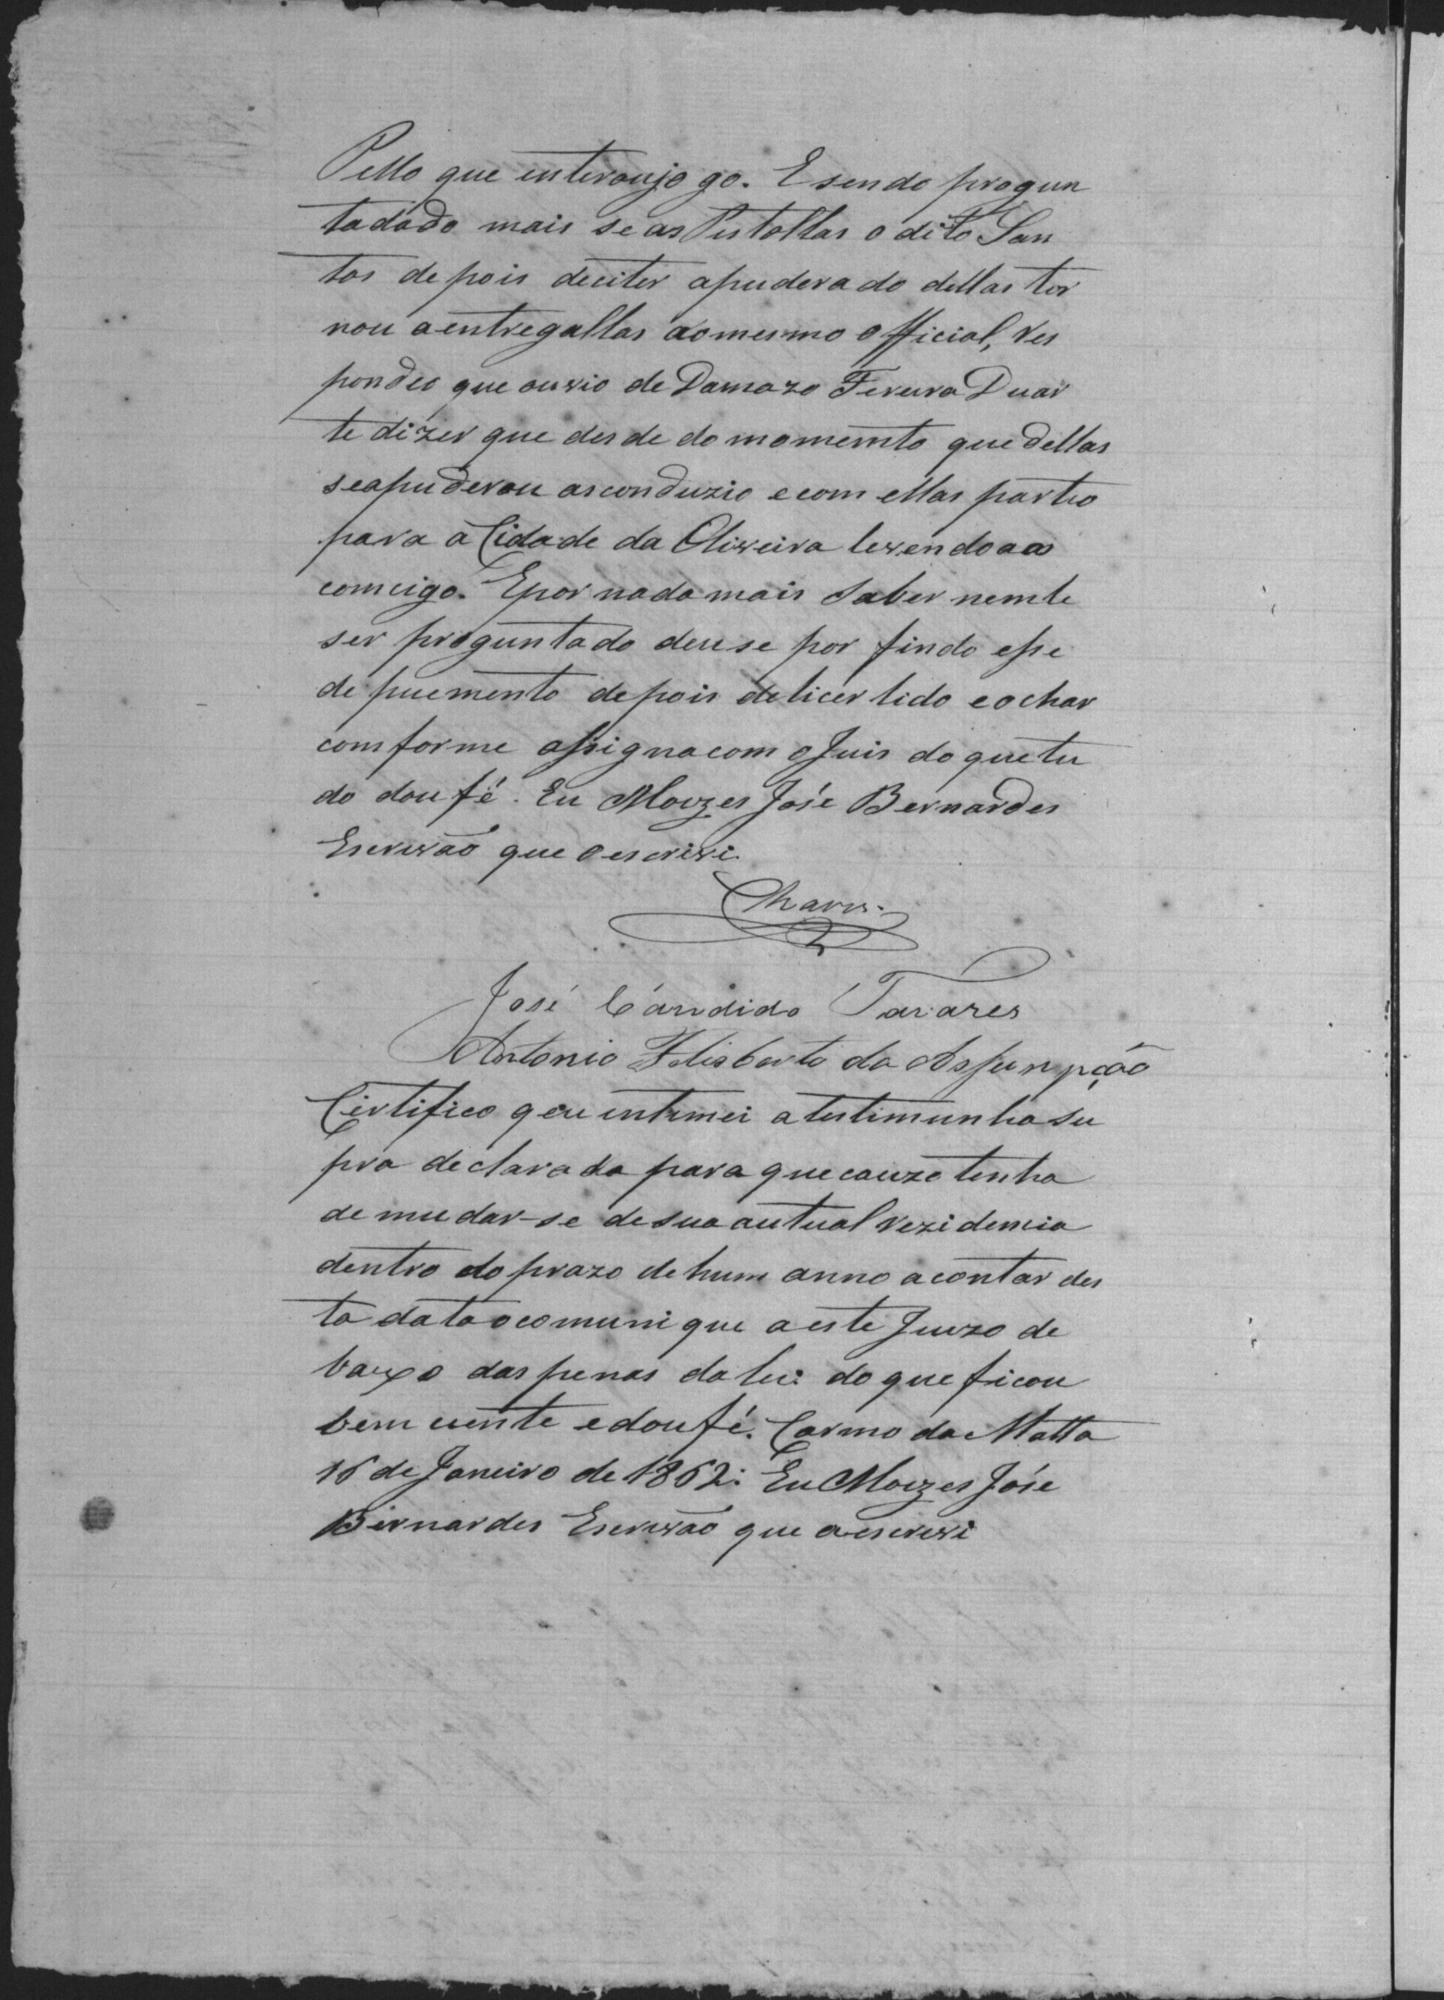 Pello que interoujo go. E sendo progun
tadodo mais se as Pistollas o dito San
tos de pois deciter apuderado dellas tor
nou a entregallas ao mesmo official, res
pondeo que ouvio de Damazo Fereira Duar
te dizer que des de do momemto que dellas
se apuderou as conduzio e com ellas partio
para a Cidade da Oliveira levendo a as
comcigo. E por nada mais saber nem le
ser proguntado deu se por findo esse
de puemento depois de licer lido e o char
comforme assigna com o Juis do que tu
do dou fé. Eu Moyzes José Bernardes
Escrivão que o escrivi.
Chaves.
José Cándido Tavares
Antonio Felisberto da Assumpção
Certifico que intimei a testimunha su
pra declarada para que cauzo tenha
de mudar-se de sua autual rezidencia
dentro do prazo de hum anno a contar des
ta data o comunique a este Juizo de
baixo das penas da lei: do que ficou
bem ciente e dou fé. Carmo da Matta
16 de Janeiro de 1862: Eu Moyzes José
Bernardes Escrivão que a escrevi